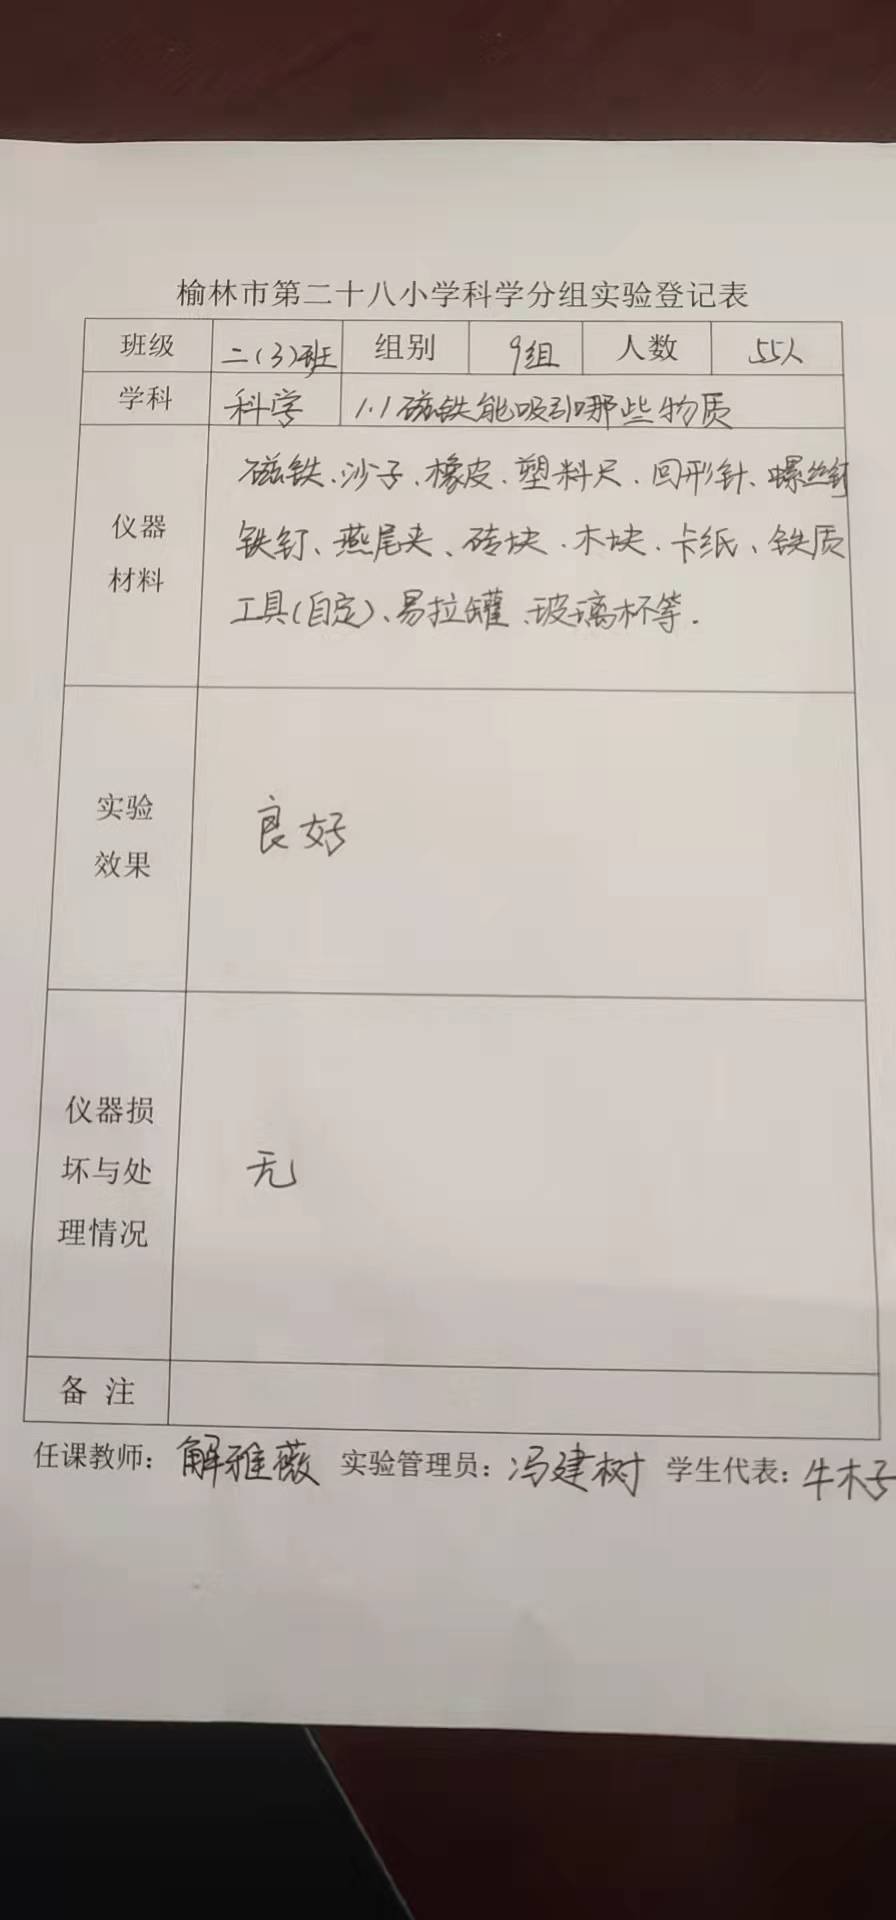 榆林市第二十八小学科学分组实验登记表
班级 二(3)班 组别 9组 人数 55人
学科 科学 1.1磁铁能吸引哪些物质
仪器
材料
磁铁、沙子、橡皮、塑料尺、回形针、螺丝钉
铁钉、燕尾夹、砖块、木块、卡纸、铁质
工具(自定)、易拉罐、玻璃杯等.
实验
效果
良好
仪器损
坏与处
理情况
无
备 注
任课教师：解雅薇 实验管理员：冯建树 学生代表：牛木子